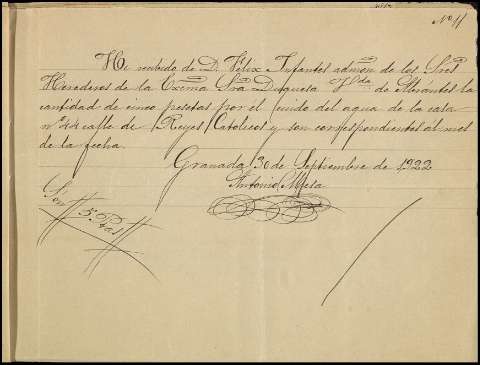 Nº 11
He recibido de D. Félix Infantes admon de los Sres
Herederos de la Excma Sra Duquesa Vda de Abrantes la
cantidad de cinco pesetas por el cuido del agua de la casa
nº 44 calle de Reyes Catolicos y son correspondientes al mes
de la fecha.
Granada 30 de Septiembre de 1922
Antonio Mesa
Son 5 Ptas